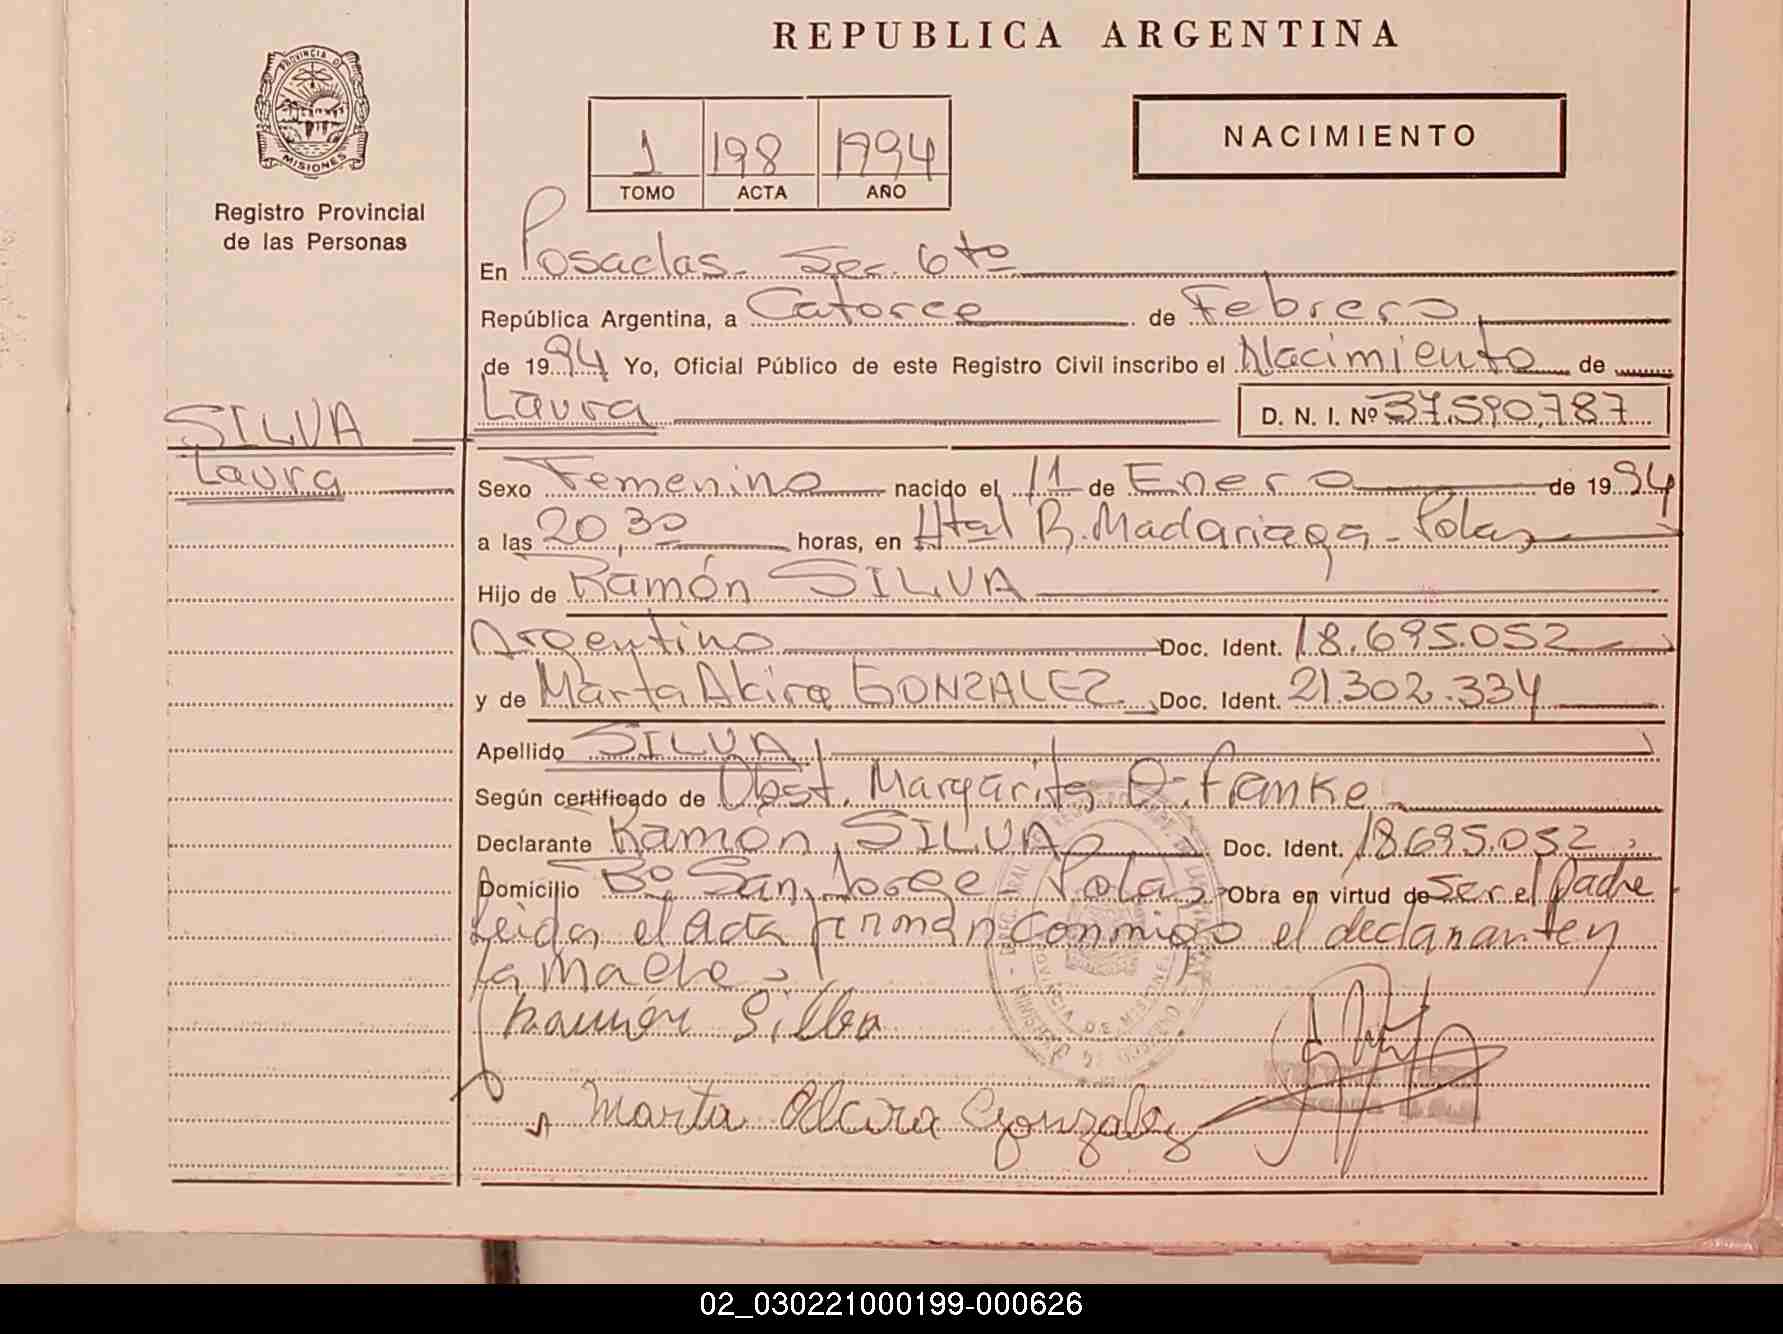 REPUBLICA ARGENTINA
PROVINCIA DE MISIONES
Registro Provincial
de las Personas
1 198 1994
TOMO ACTA AÑO
NACIMIENTO
En Posadas. Sec. 6to
República Argentina, a Catorce de Febrero
de 1994 Yo, Oficial Público de este Registro Civil inscribo el Nacimiento de
Laura D. N. I. Nº 37.590.787
SILVA
Laura
Sexo Femenino nacido el 11 de Enero de 1994
a las 20,30 horas, en Htal R. Madariaga - Pdas
Hijo de Ramón SILVA
Argentino Doc. Ident. 18.695.052
y de Marta Alcira GONZALEZ Doc. Ident. 21.302.334
Apellido SILVA
Según certificado de Obst. Margarita Franke
Declarante Ramón SILVA Doc. Ident. 18.695.052
Domicilio Bº San Jorge - Pdas Obra en virtud de ser el padre
Leida el acta firman conmigo el declarante y
la madre
Ramón Silva
Marta Alcira Gonzalez
PROVINCIA DE MISIONES
02_030221000199-000626